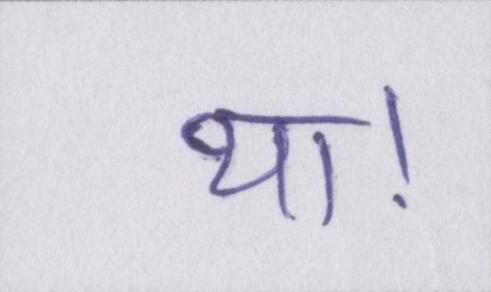 था!